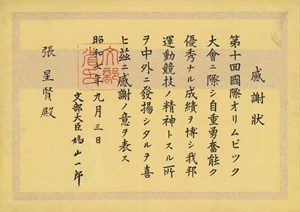 感謝狀
第十回國際オリムピック
大會ニ際シ自重勇奮能ク
優秀ナル成績ヲ博シ我邦
運動競技ノ精神トスル所
ヲ中外ニ發揚シタルヲ喜
ヒ茲ニ感謝ノ意ヲ表ス
昭和七年九月三日
文部大臣鳩山一郎
張星賢殿
文部省印